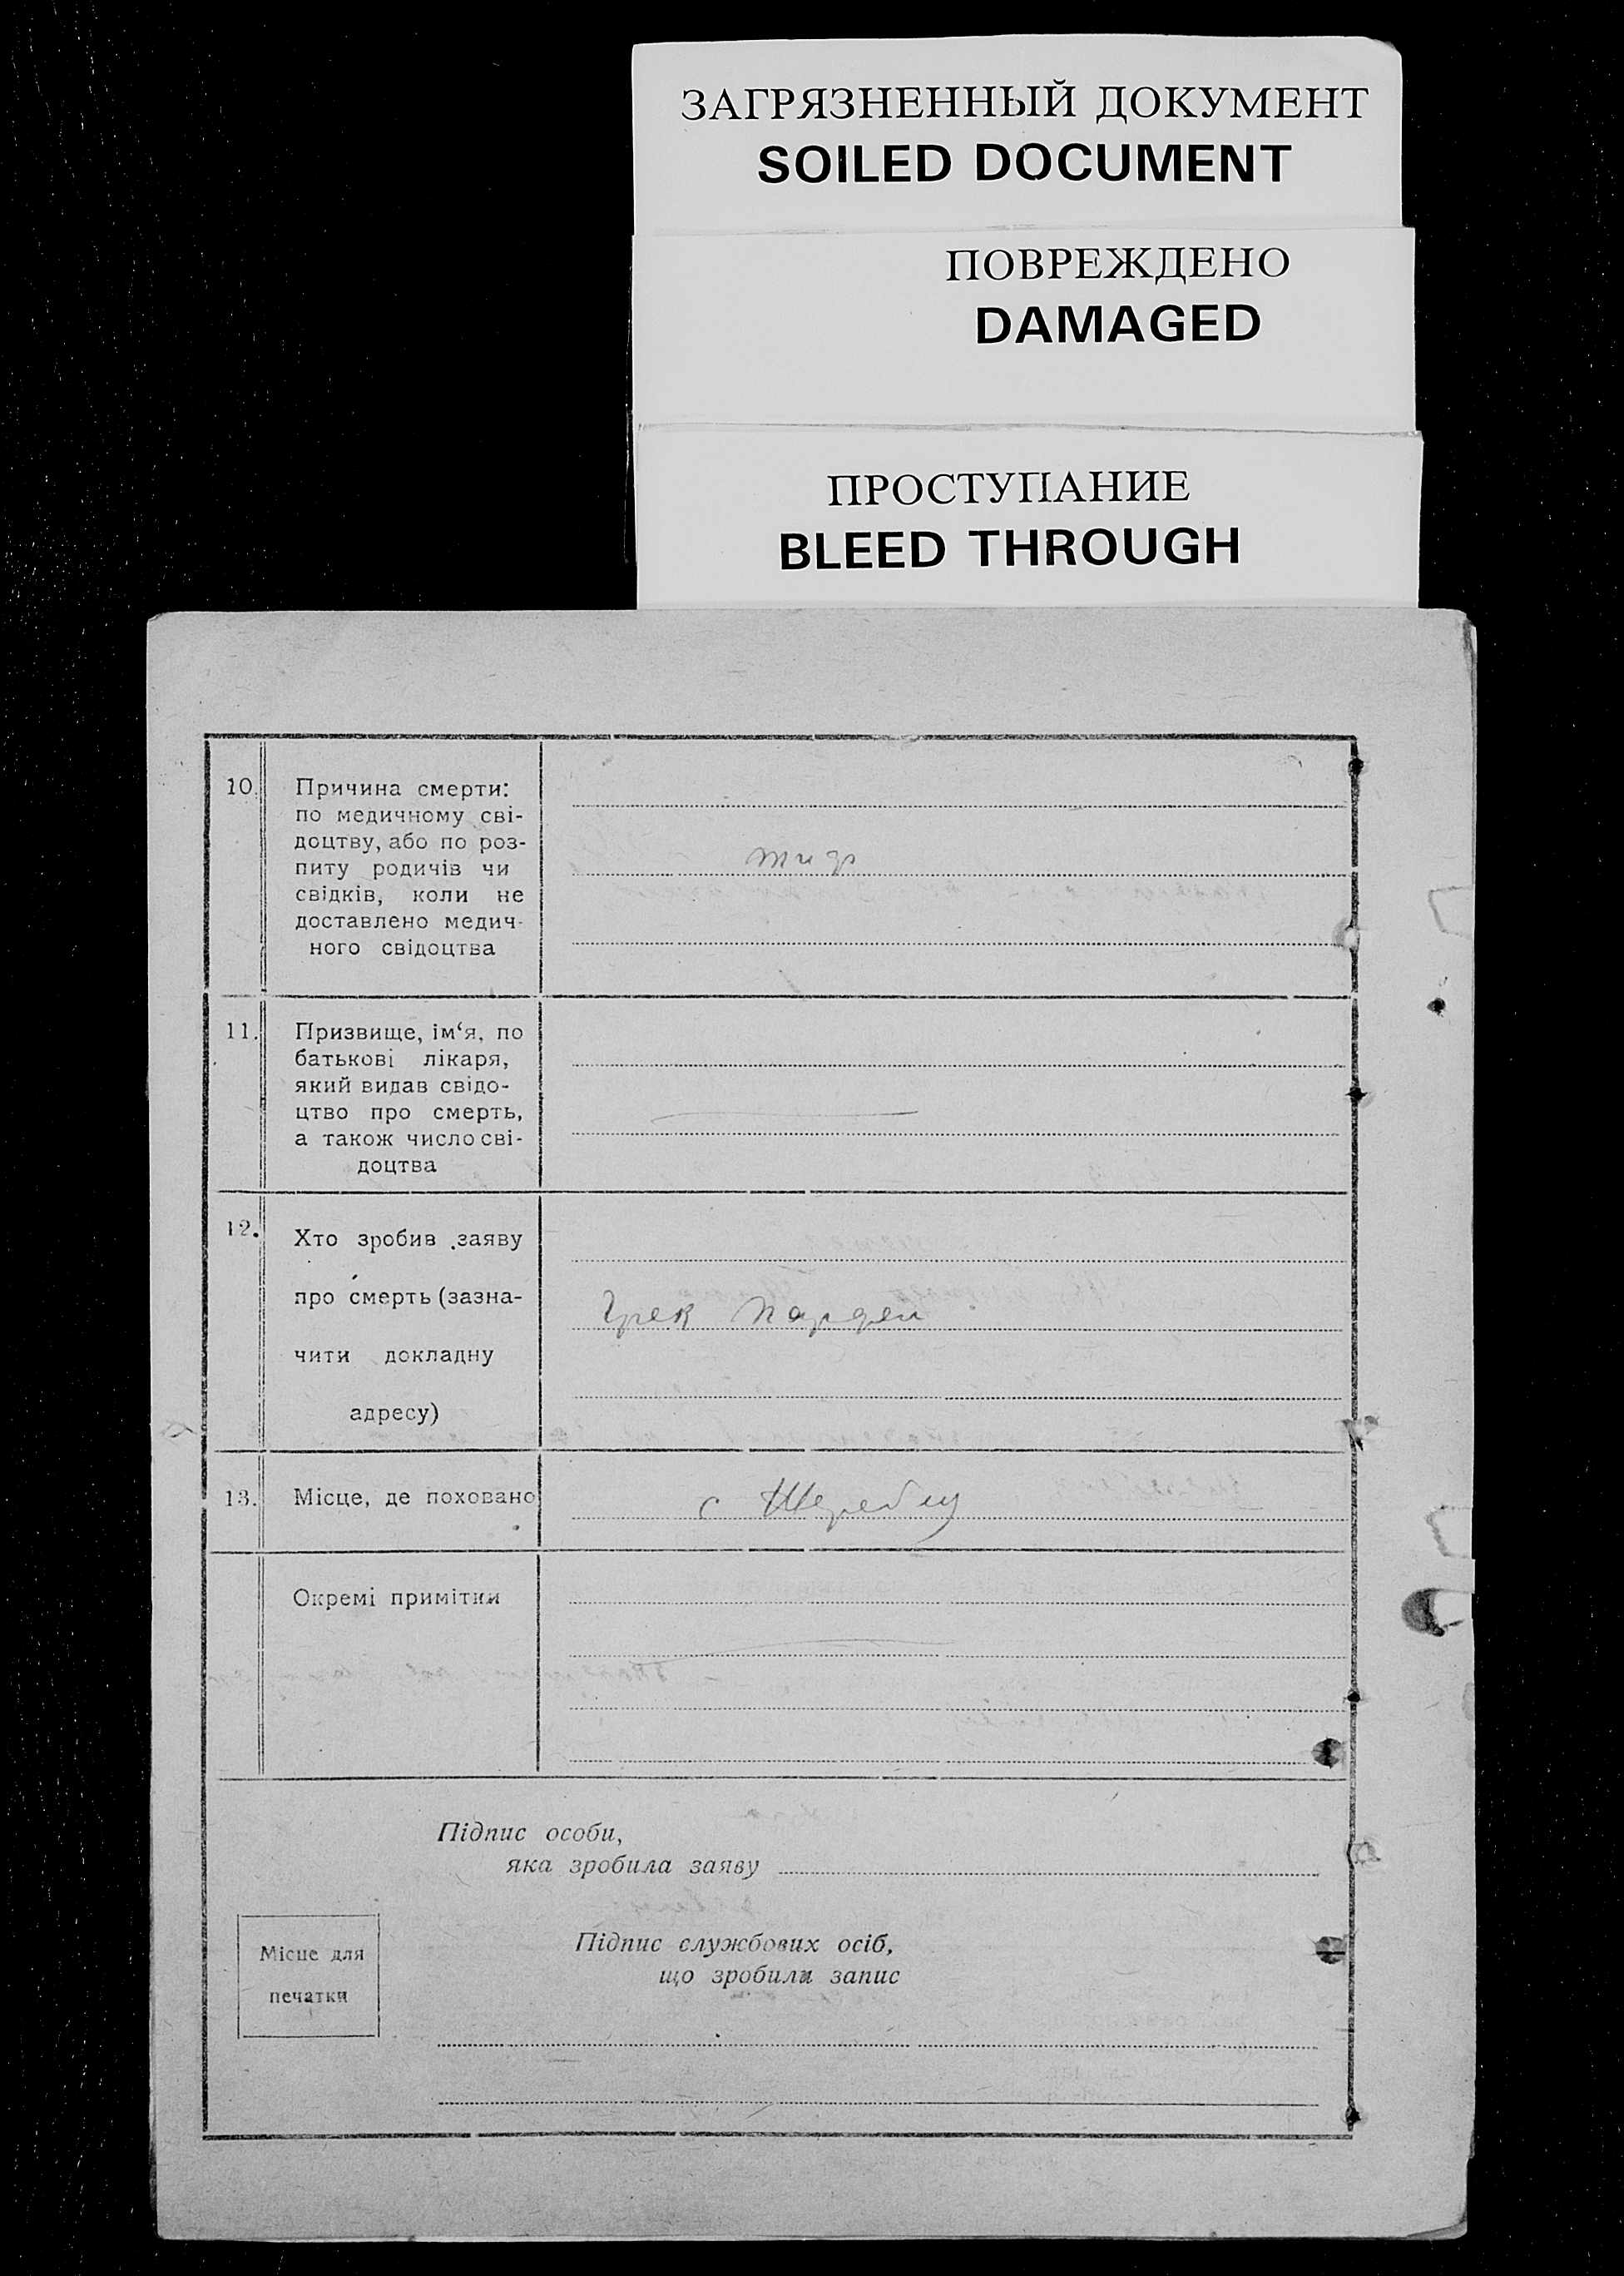 ЗАГРЯЗНЕННЫЙ ДОКУМЕНТ
SOILED DOCUMENT
ПОВРЕЖДЕНО
DAMAGED
ПРОСТУПАНИЕ
BLEED THROUGH
10. Причина смерти:
по медичному сві-
доцтву, або по роз-
питу родичів чи
свідків, коли не
доставлено медич-
ного свідоцтва
тиф
11. Призвище, ім‘я, по
батькові лікаря,
який видав свідо-
цтво про смерть,
а також число сві-
доцтва
12. Хто зробив заяву
про смерть (зазна-
чити докладну
адресу)
Грек
13. Місце, де поховано
с
Окремі примітки
Підпис особи,
яка зробила заяву
Місце для
печатки
Підпис службових осіб,
що зробили запис